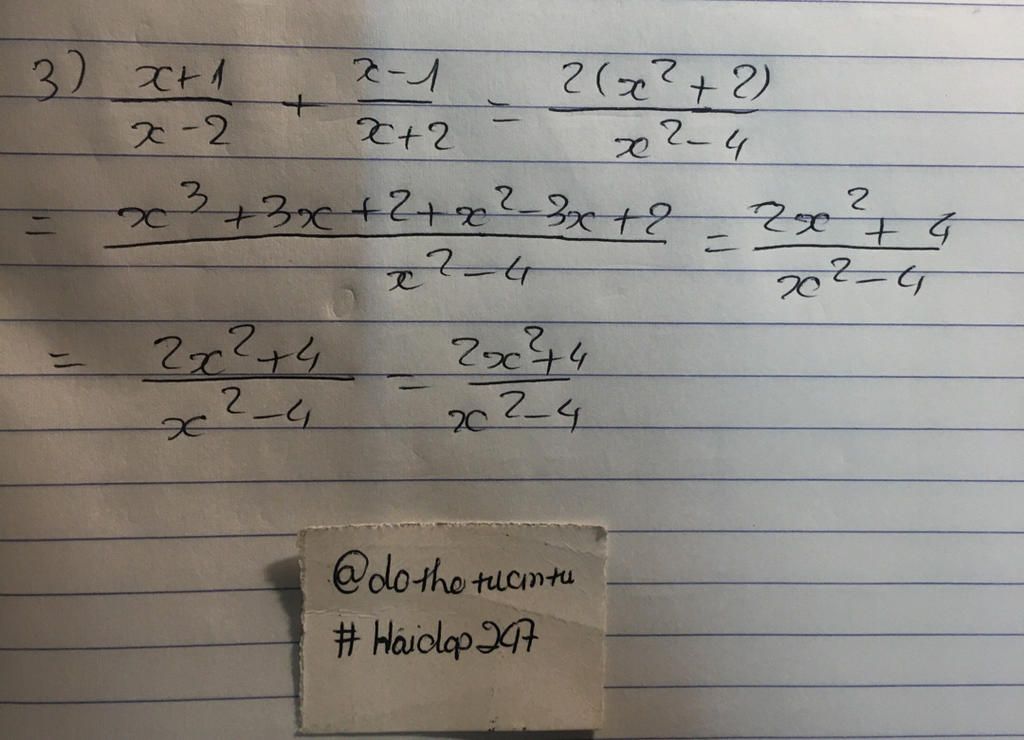 3) (x+1)/(x-2) + (x-1)/(x+2) = 2(x²+2)/(x²-4)
= (x³+3x+2+x²-3x+2)/(x²-4) = (2x²+4)/(x²-4)
= (2x²+4)/(x²-4) = (2x²+4)/(x²-4)
@dothetuantu
# Hoidap247